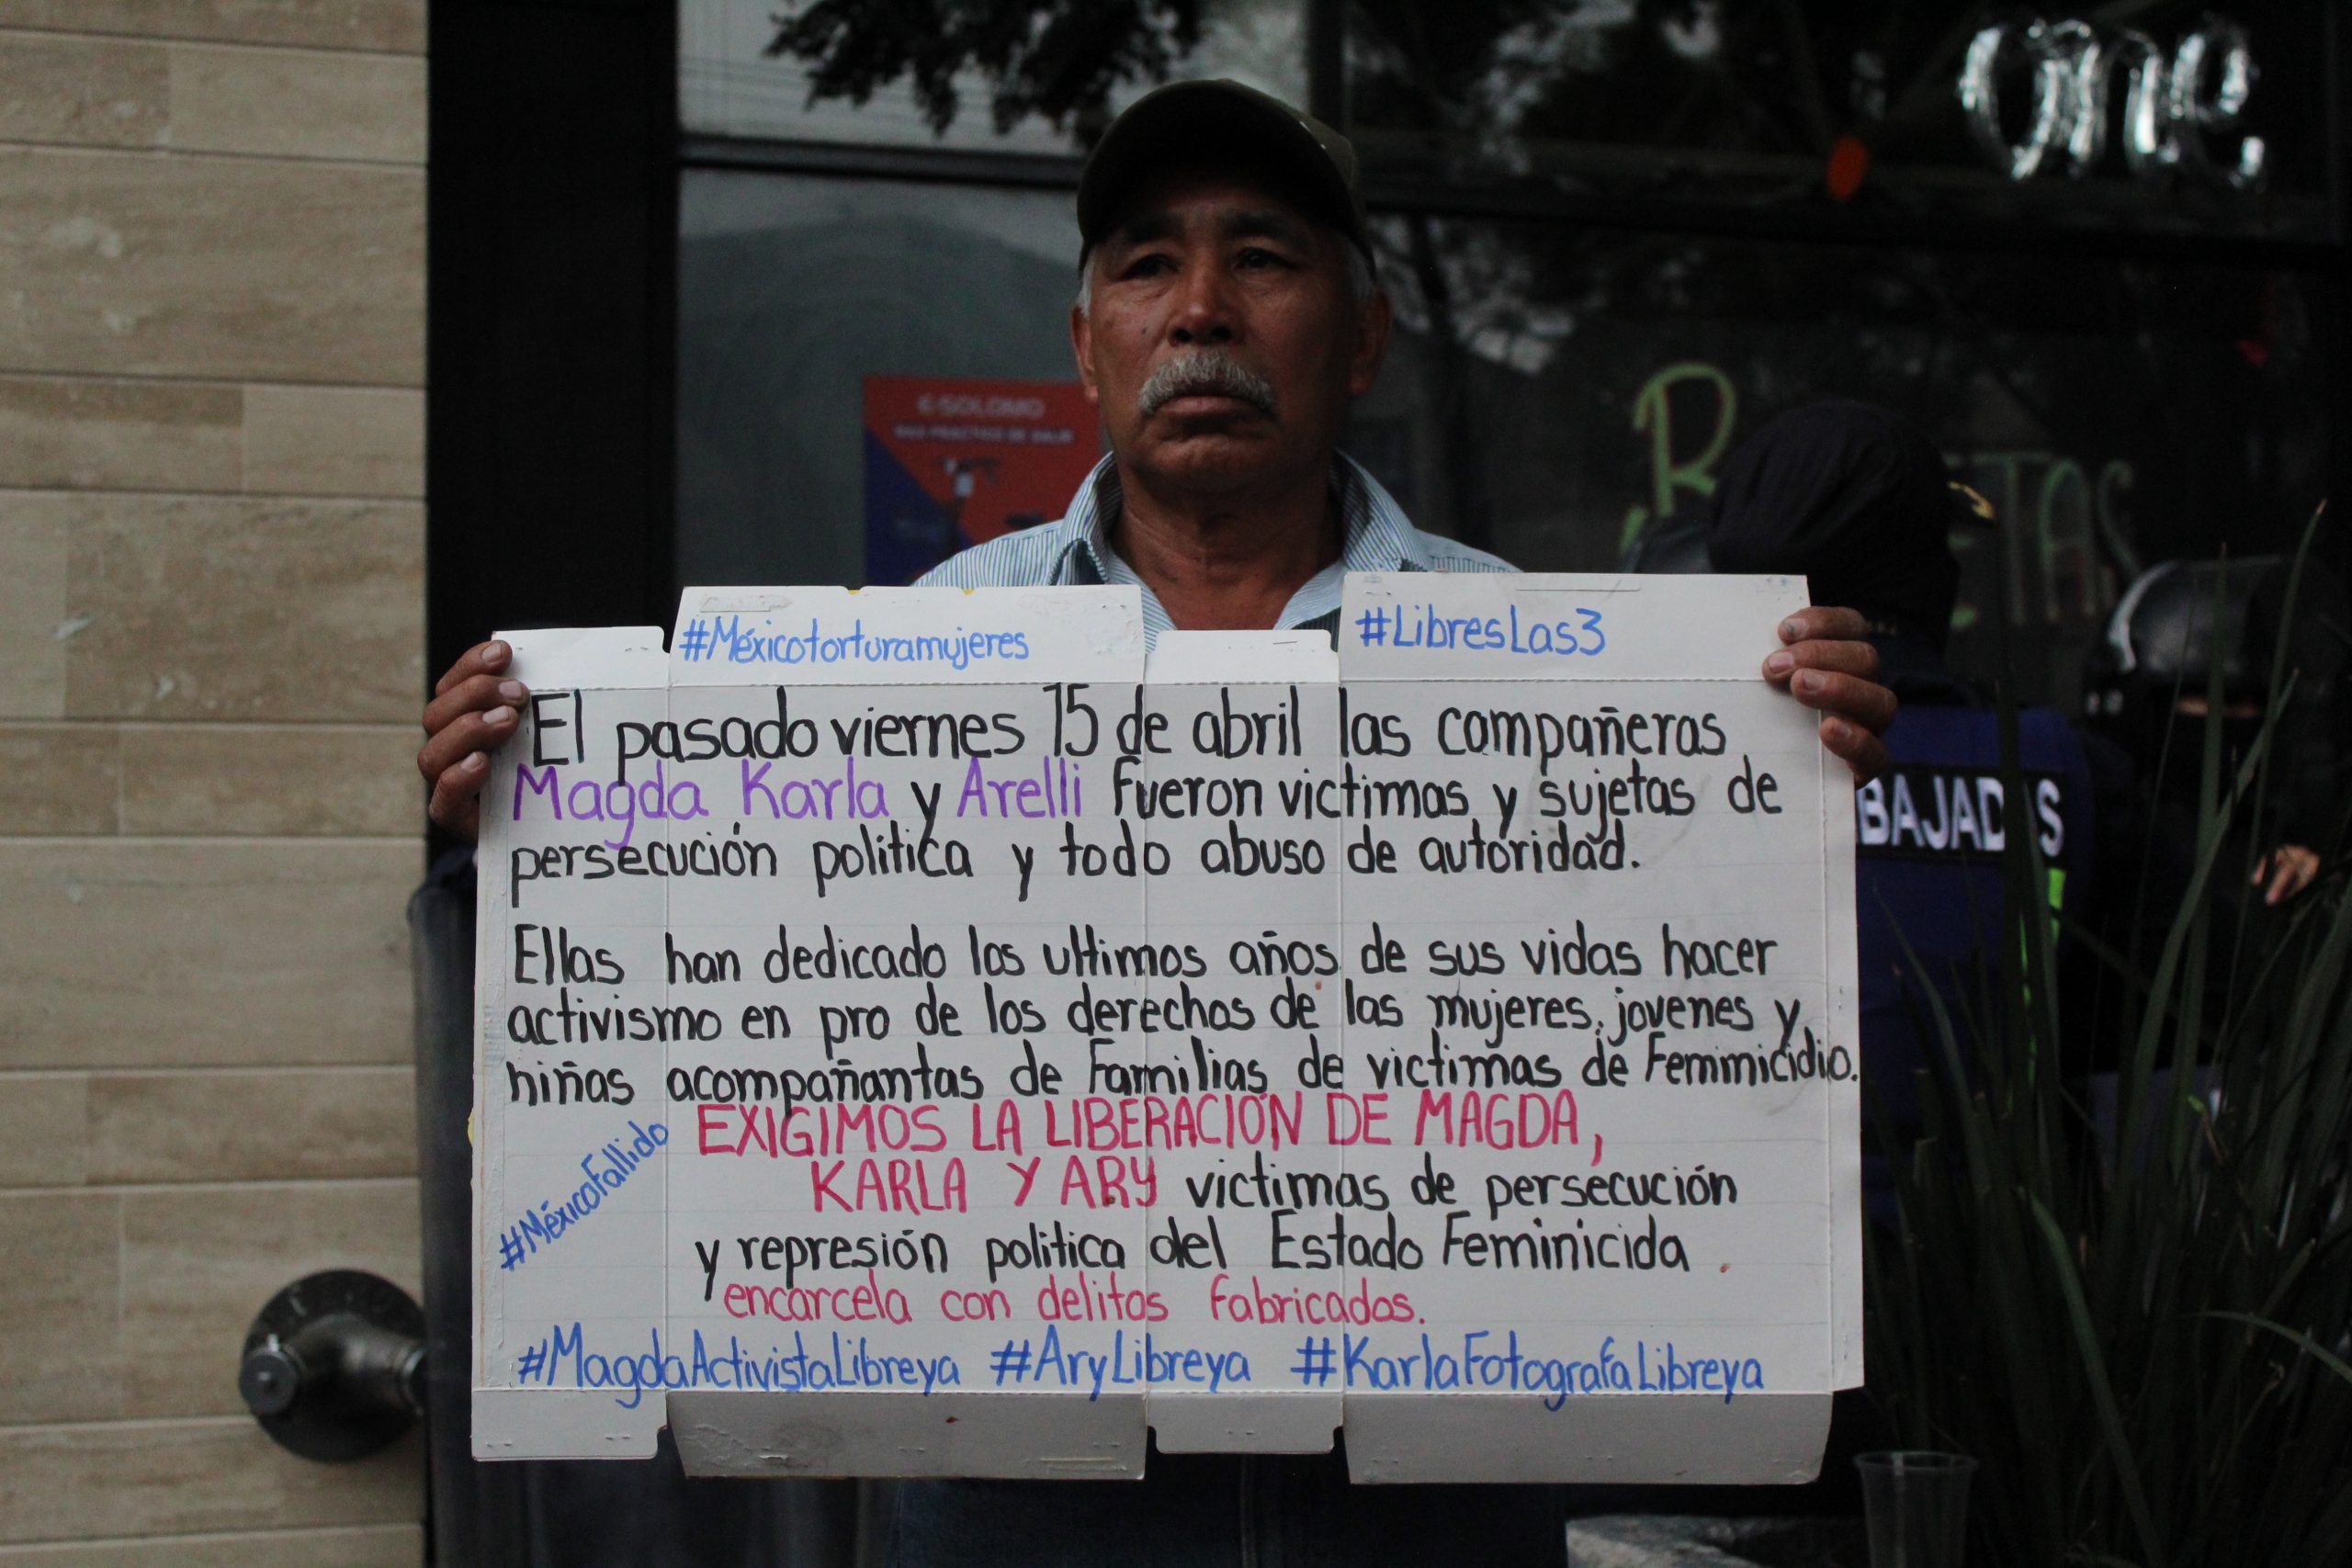 one
#Méxicotorturamujeres
#LibresLas3
El pasado viernes 15 de abril las compañeras
Magda, Karla y Arelli fueron victimas y sujetas de
persecución politica y todo abuso de autoridad.
Ellas han dedicado los ultimos años de sus vidas hacer
activismo en pro de los derechos de las mujeres, jovenes y
niñas acompañantas de Familias de victimas de Feminicidio.
EXIGIMOS LA LIBERACIÓN DE MAGDA,
KARLA Y ARY victimas de persecución
y represión politica del Estado Feminicida
encarcela con delitos fabricados.
#MéxicoFallido
#MagdaActivistaLibreya #AryLibreya #KarlaFotografaLibreya